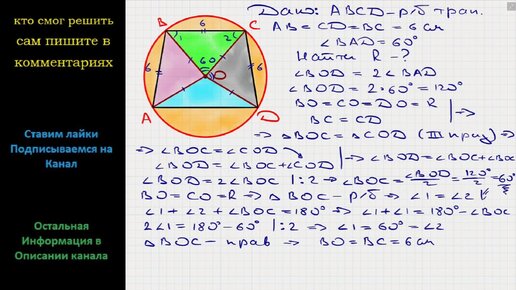 кто смог решить
сам пишите в
комментариях
Ставим лайки
Подписываемся на
Канал
Остальная
Информация в
Описании канала
B 6 C
1 2
6 60 6
O
A D
Дано: ABCD – р/б трап.
AB = CD = BC = 6 см
∠BAD = 60°
Найти R – ?
∠BOD = 2∠BAD
∠BOD = 2·60° = 120°
BO = CO = DO = R
BC = CD | →
→ △BOC = △COD (III призн) →
→ ∠BOC = ∠COD
∠BOD = ∠BOC + ∠COD | → ∠BOD = ∠BOC + ∠BOC
∠BOD = 2∠BOC |:2 → ∠BOC = ∠BOD/2 = 120°/2 = 60°
BO = CO = R → △BOC – р/б → ∠1 = ∠2
∠1 + ∠2 + ∠BOC = 180° → ∠1 + ∠1 = 180° – ∠BOC
2∠1 = 180° – 60° |:2 → ∠1 = 60° = ∠2
△BOC – прав → BO = BC = 6 см